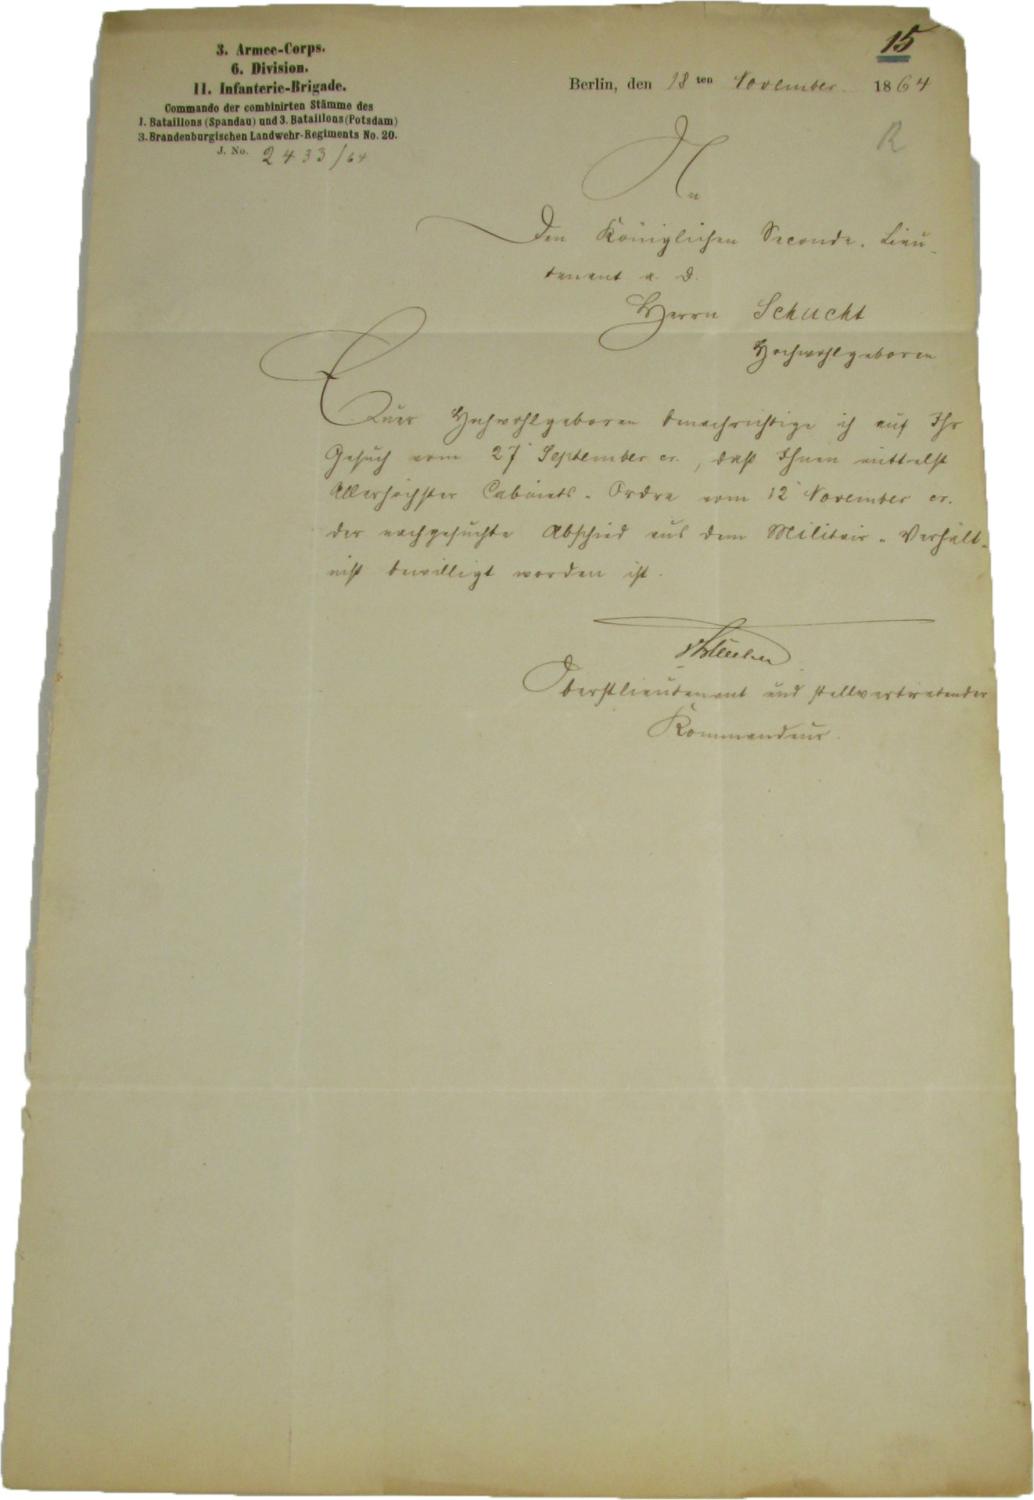 15
3. Armee-Corps.
6. Division.
11. Infanterie-Brigade.
Commando der combinirten Stämme des
1. Bataillons (Spandau) und 3. Bataillons (Potsdam)
3. Brandenburgischen Landwehr-Regiments No. 20.
J. No. 2433/64
Berlin, den 18ten November 1864
R
An
Den Königlichen Seconde-Lieu-
tenant a. D.
Herrn Schucht
Hochwohlgeboren
Euer Hochwohlgeboren benachrichtige ich auf Ihr
Gesuch vom 27 September cr., daß Ihnen mittelst
Allerhöchster Cabinets-Ordre vom 12 November cr.
der nachgesuchte Abschied aus dem Militair-Verhält-
niß bewilligt worden ist.
Oberstlieutenant und stellvertretender
Kommandeur.